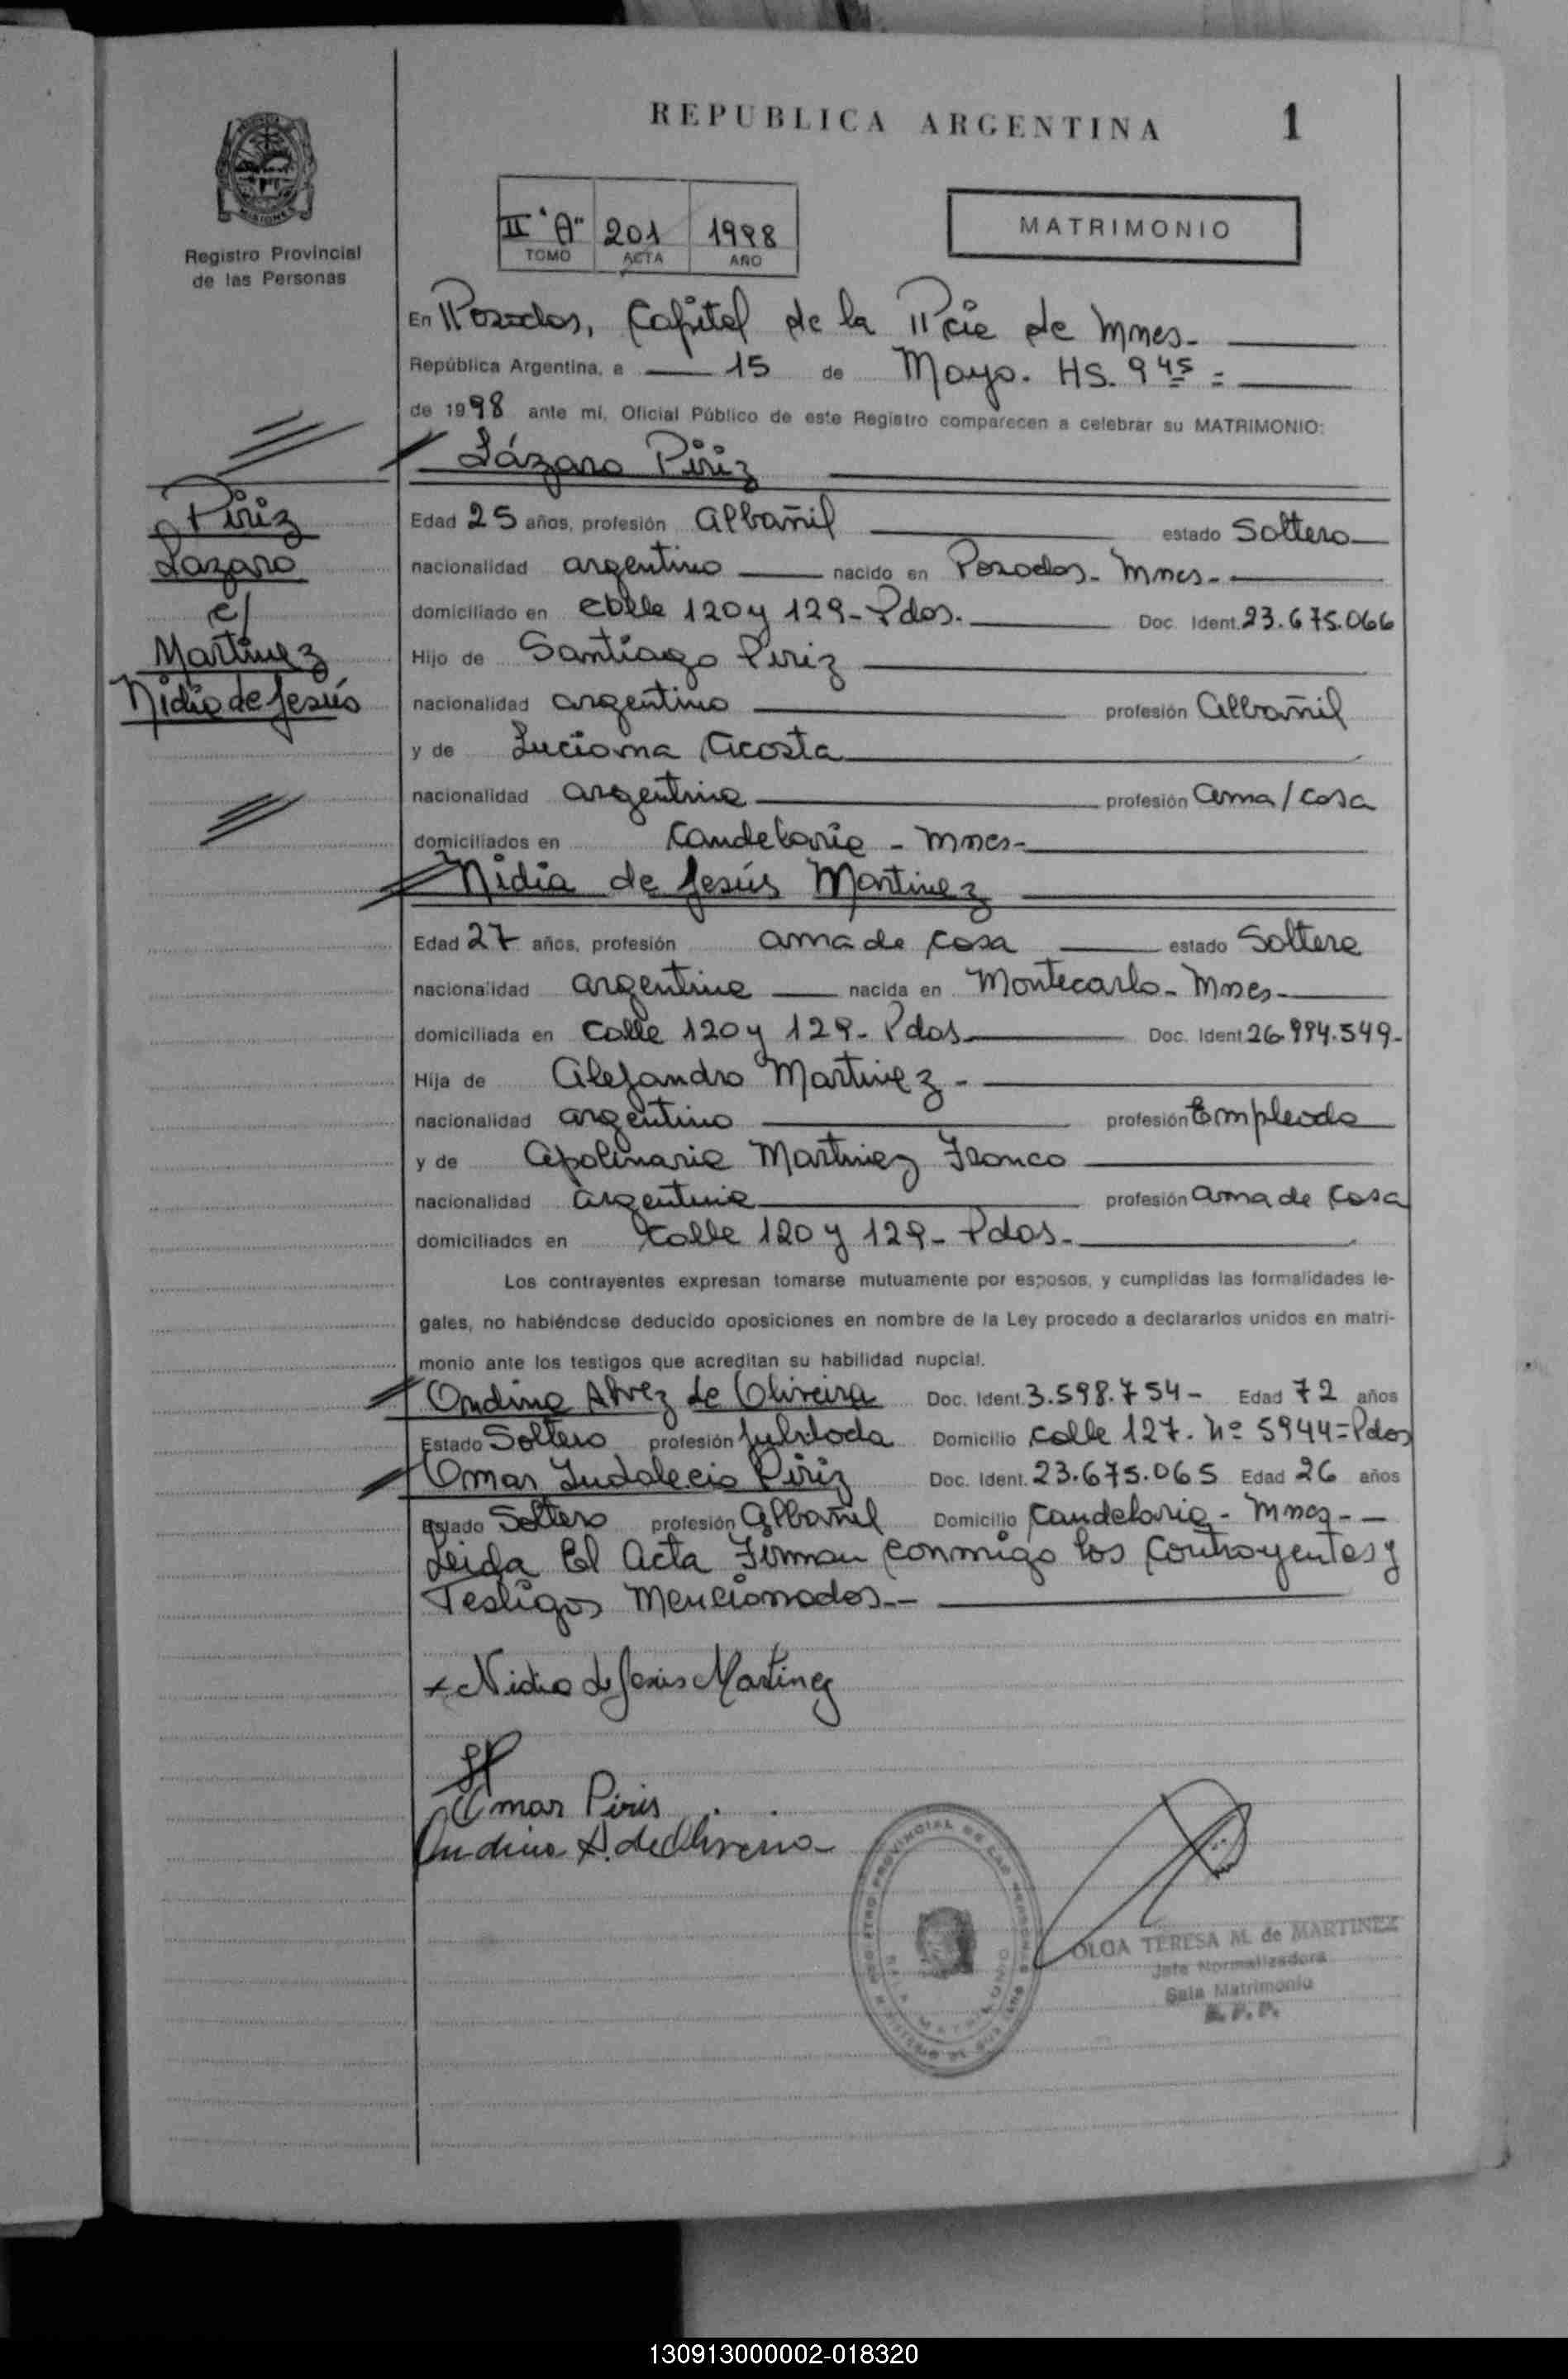 REPUBLICA ARGENTINA 1
Registro Provincial
de las Personas
II "A" 201 1998
TOMO ACTA AÑO
MATRIMONIO
En Posadas, Capital de la Pcia de Mnes.
República Argentina, a 15 de Mayo. HS. 9 45 =
de 1998 ante mí, Oficial Público de este Registro comparecen a celebrar su MATRIMONIO:
Lázaro Píriz
Piriz
Lazaro
c/
Martinez
Nidia de Jesús
Edad 25 años, profesión albañil estado Soltero
nacionalidad argentino nacido en Posadas - Mnes -
domiciliado en Calle 120 y 129 - Pdas. Doc. Ident. 23.675.066
Hijo de Santiago Piriz
nacionalidad argentino profesión albañil
y de Luciana Acosta
nacionalidad argentina profesión ama/casa
domiciliados en Candelaria - Mnes -
Nidia de Jesús Martinez
Edad 27 años, profesión ama de casa estado Soltera
nacionalidad argentina nacida en Montecarlo - Mnes -
domiciliada en Calle 120 y 129 - Pdas Doc. Ident 26.994.549 -
Hija de Alejandro Martinez -
nacionalidad argentino profesión Empleado
y de Apolinaria Martinez Franco
nacionalidad argentina profesión ama de casa
domiciliados en Calle 120 y 129 - Pdas -
Los contrayentes expresan tomarse mutuamente por esposos, y cumplidas las formalidades le-
gales, no habiéndose deducido oposiciones en nombre de la Ley procedo a declararlos unidos en matri-
monio ante los testigos que acreditan su habilidad nupcial.
Ondina Alvez de Oliveira Doc. Ident. 3.598.754 - Edad 72 años
Estado Soltero profesión Jubilada Domicilio Calle 127. Nº 5944 = Pdas
Omar Indalecio Piriz Doc. Ident. 23.675.065 Edad 26 años
Estado Soltero profesión albañil Domicilio Candelaria - Mnes -
Leida El Acta Firman conmigo los contrayentes y
Testigos Mencionados. -
Nidia de Jesús Martinez
Omar Piris
Ondina A. de Oliveira
OLGA TERESA M. de MARTINEZ
Jefe Normalizadora
Sala Matrimonio
R. P. P.
130913000002-018320